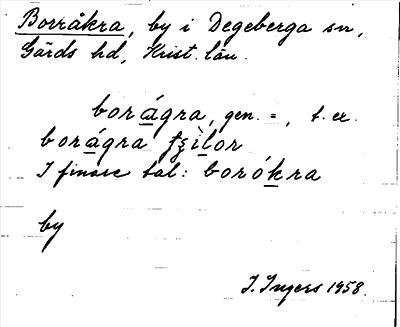 Borråkra, by i Degeberga sn,
Gärds hd, Krist. län.
borágra, gen. =, t. ex.
borágra fʒìlor
I finare tal: borókra
by
I. Ingers 1958.